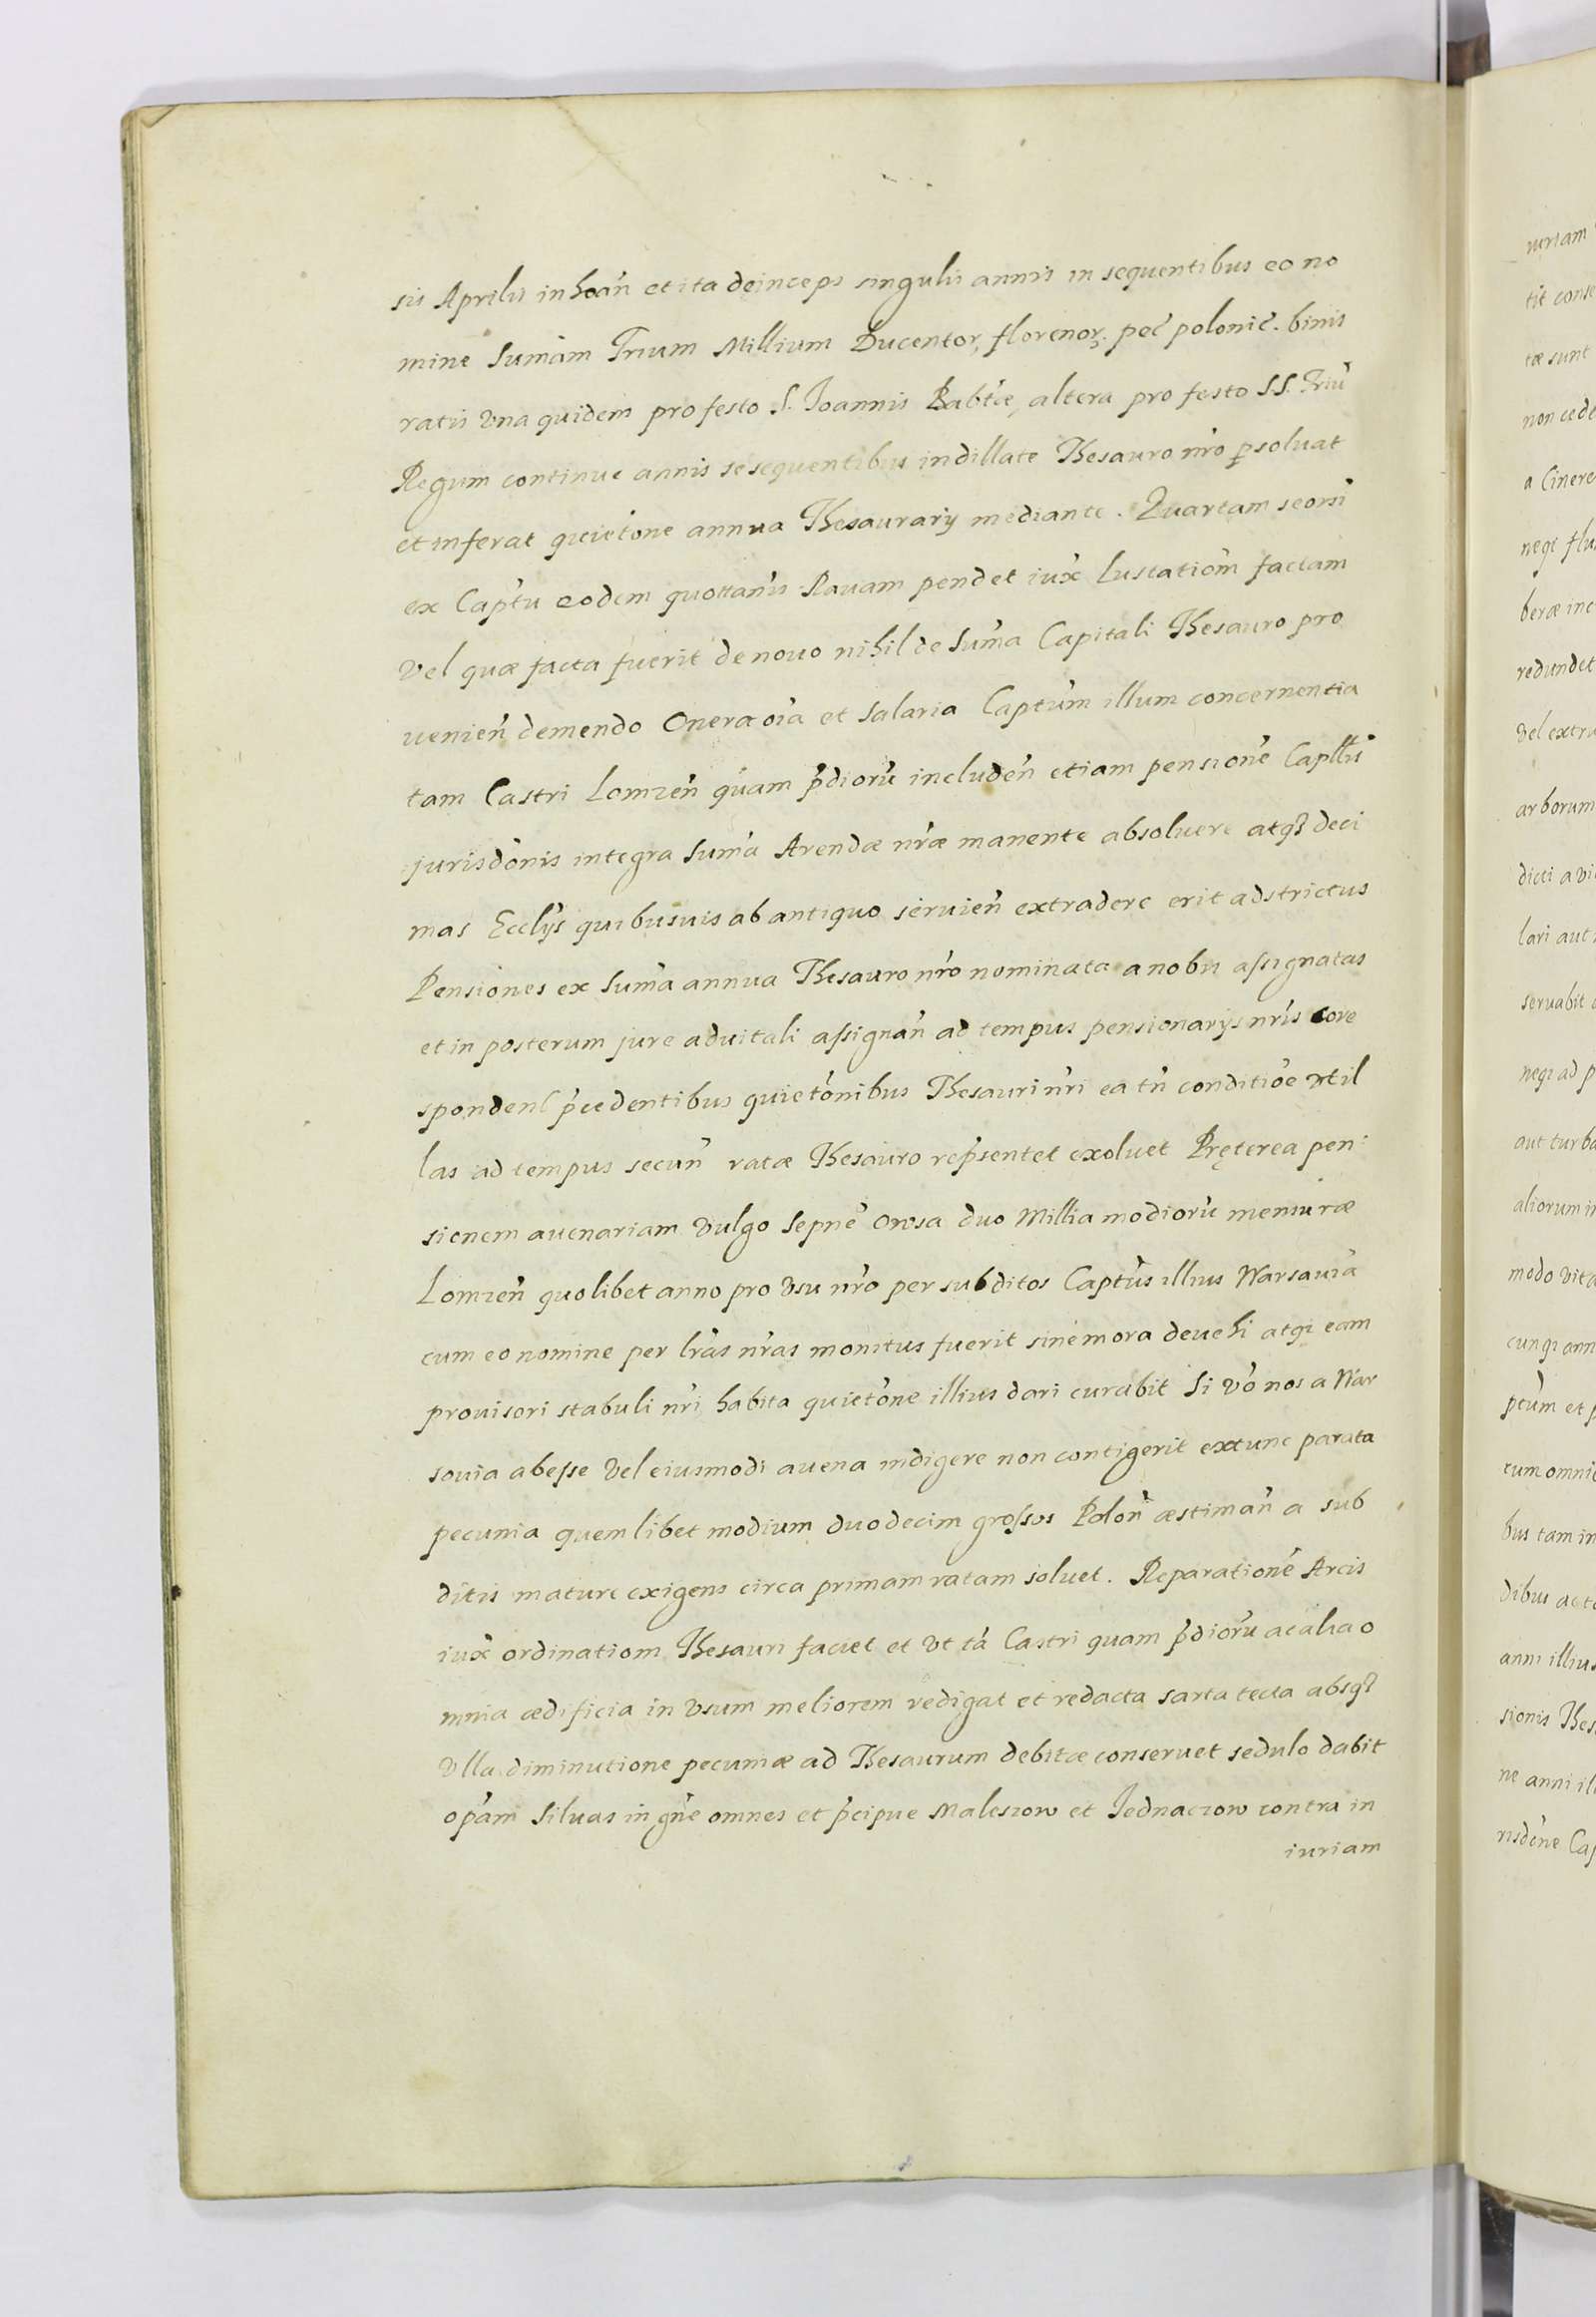 sis Aprilis inhoãn et ita deinceps singulis annis in sequentibus eo no
mine Sumãm Trium Millium Ducentor, florenor. peč polonič. binis
ratis vna quidem pro festo S. Joannis Babtæ, altera pro festo SS. Triũ
Regum continue annis se sequentibus indillate Thesauro nřo psoluat
et inferat quietõne annua Thesaurarij mediante. Quartam seorsĩ
ex Captu eodem quottañis Rauam pendet iux̃ Lustatiom̃ factam
vel quæ facta fuerit denouo nihil de Suma Capitali Thesauro pro
uenieñ demendo Onera oĩa et salaria Captum illum concernentia
tam Castri Lomzeñ quam p̃dioru includeñ etiam pensionẽ Capllis
jurisdõnis integra Suma Arendæ nræ manente absoluere atq3 deci
mas Ecclijs quibusuis ab antiquo seruieñ extradere erit adstrictus
Pensiones ex Suma annua Thesauro nřo nominata a nobis assignatas
et in posterum jure aduitali assignañ ad tempus pensionarijs nřis core
spondenl p̃cedentibus quietõnibus Thesauri nři ea tñ conditiõe vt il
las ad tempus secuñ ratæ Thesauro rep̃sentet exoluet Pręterea pen:
sienem auenariam vulgo Sepnẽ Owsa duo Millia modioru mensuræ
Lomzeñ quolibet anno pro vsu nřo per subditos Captus illius Warsauiã
cum eo nomine per lřas nřas monitus fuerit sine mora deuehi atq3 eam
prouisori stabuli nři habita quietõne illius dari curabit Si võ nos a War
souia abesse vel eiusmodi auena indigere non contigerit extunc parata
pecunia quemlibet modium duodecim grossos Poloñ æstimañ a sub
ditis mature exigens circa primam ratam soluet. Reparationẽ Arcis
iux̃ ordinatiom Thesauri faciet et vt tã Castri quam p̃dioru ac alia o
mnia ædificia in vsum meliorem redigat et redacta sarta tecta absq3
vlla diminutione pecuniæ ad Thesaurum debitæ conseruet sedulo dabit
op̃am Siluas in gñe omnes et p̃cipue Maleszow et Jednaczow contra in
iuriam